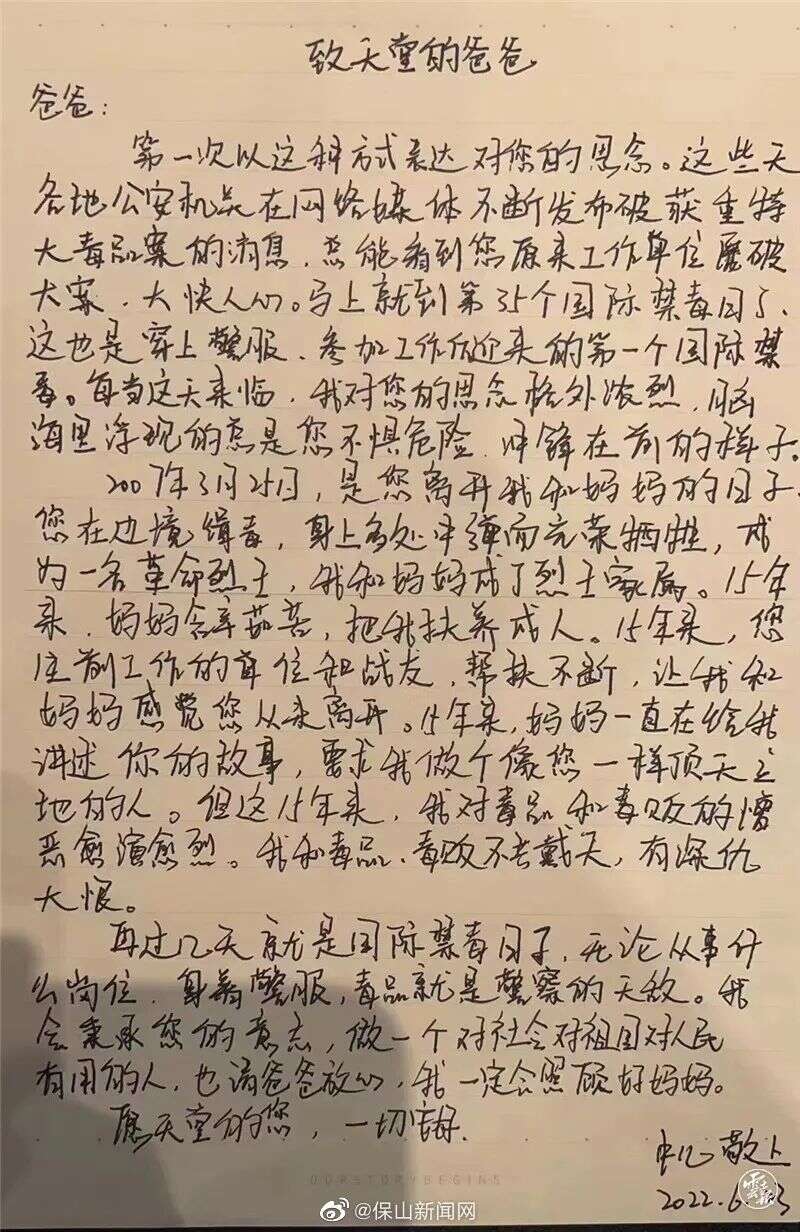 致天堂的爸爸
爸爸：
第一次以这种方式表达对您的思念。这些天
各地公安机关在网络媒体不断发布破获重特
大毒品案的消息，总能看到您原来工作单位屡破
大案，大快人心。马上就到第35个国际禁毒日了，
这也是穿上警服、参加工作后迎来的第一个国际禁
毒。每当这天来临，我对您的思念格外浓烈，脑
海里浮现的总是您不惧危险，冲锋在前的样子。
2007年3月25日，是您离开我和妈妈的日子。
您在边境缉毒，身上多处中弹而光荣牺牲，成
为一名革命烈士，我和妈妈成了烈士家属。15年
来，妈妈含辛茹苦，把我扶养成人。15年来，您
生前工作的单位和战友，帮扶不断，让我和
妈妈感觉您从未离开。15年来，妈妈一直在给我
讲述你的故事，要求我做个像您一样顶天立
地的人。但这15年来，我对毒品和毒贩的憎
恶愈演愈烈。我和毒品、毒贩不共戴天，有深仇
大恨。
再过几天就是国际禁毒日了，无论从事什
么岗位，身着警服，毒品就是警察的天敌。我
会秉承您的意志，做一个对社会对祖国对人民
有用的人，也请爸爸放心，我一定会照顾好妈妈。
愿天堂的您，一切安好
敬上
2022.6.
OURSTORYBEGINS
@保山新闻网